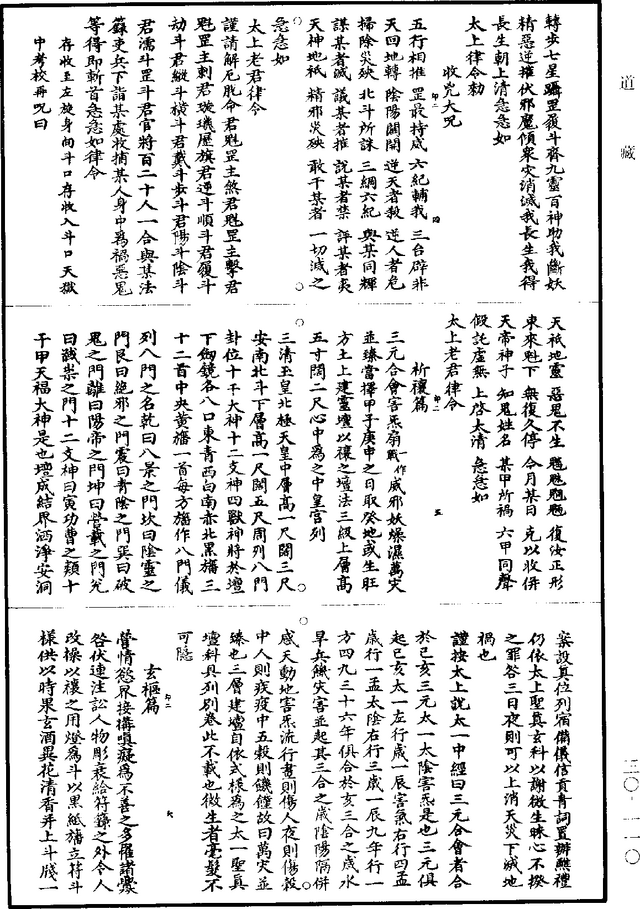 道藏
三〇—一一〇
轉步七星躡罡履斗齊九靈百神助我斷妖
精惡逆摧伏邪魔傾衆灾消滅我長生我得
長生朝上清急急如
太上律令勑
收咒大咒 印二
五行相推 罡最持威 六紀輔我 三台辟非
天回地轉 陰陽關閉 逆天者殺 逆人者危
掃除災殃 北斗所誅 三綱六紀 與某同輝
謀某者滅 議某者推 說某者禁 評某者夷
天神地祇 精邪災殃 敢干某者 一切滅之
急急如
太上老君律令
謹請解厄脫命君魁罡主煞君魁罡主擊君
魁罡主刺君璇璣歷旗君逆斗順斗君履斗
劫斗君縱斗橫斗君戴斗步斗君陽斗陰斗
君濡斗罡斗君官將百二十人一合與某法
籙吏兵下詣某處收捕某人身中爲禍惡鬼
等得即斬首急急如律令
存收至左旋身向斗口存收入斗口天獄
中考校再咒曰
天祇地靈 惡鬼不生 魁魁魁魁 復汝正形
東來魁下 無復久停 今月某日 克以收併
天帝神子 知鬼姓名 某甲所禍 六甲同聲
假託虛無 上啓太清 急急如
太上老君律令
祈禳篇 印二
三元合會害炁扇戰一作威邪妖燥濕萬灾
並臻當擇甲子庚申之日取癸地或生旺
方土上建靈壇以禳之壇法三級上層高
五寸闊二尺心中爲之中皇宮列
三清玉皇北極天皇中層高一尺闊三尺
安南北斗下層高一尺闊五尺周列八門
卦位十干大神十二支神四獸神將於壇
下劒鏡各八口東青西白南赤北黑旛三
十二首中央黃旛一首每方旛作八門儀
列八門之名乾曰八景之門坎曰陰靈之
門艮曰絕邪之門震曰青陰之門巽曰破
鬼之門離曰陽帝之門坤曰營載之門兌
曰誠祟之門十二支神曰寅功曹之類十
干甲天福大神是也壇成結界洒淨安洞
案設眞位列宿備儀信賁青詞置辦醮禮
仍依太上聖眞玄科以謝微生昧心不揆
之罪各三日夜則可以上消天災下滅地
禍也
謹按太上說太一中經曰三元合會者合
於己亥三元太一太陰害炁是也三元俱
起己亥太一左行歲一辰害氣右行四孟
歲行一孟太陰右行三歲一辰九年行一
方四九三十六年俱合於亥三合之歲水
旱兵饑灾害並起其三合之歲陰陽隔併
感天動地害炁流行晝則傷人夜則傷穀
中人則疾疫中五穀則饑饉故曰萬灾並
臻也三層建壇自依式樣爲之太一聖眞
壇科具列別卷此不載也微生者毫髮不
可隱
玄樞篇 印二
嘗情慾界接構嗔癡爲不善之多罹諸釁
咎伏連注訟人物彫衰給符籙之外令人
改操以禳之用燈爲斗以黑紙旛立符斗
樣供以時果玄酒異花清香并上斗牋一